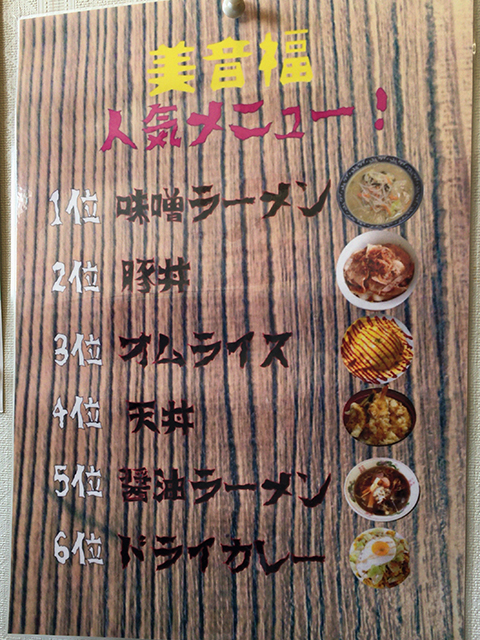 美音福
人気メニュー!
1位 味噌ラーメン
2位 豚丼
3位 オムライス
4位 天丼
5位 醤油ラーメン
6位 ドライカレー